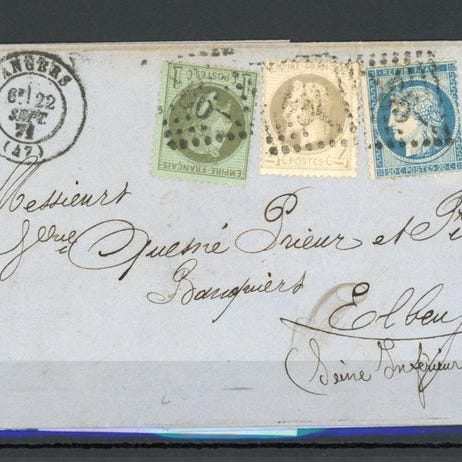 ANGERS
6E 22
SEPT.
71
(47)
1 POSTES C. 1
EMPIRE-FRANÇAIS
2 POSTES C. 2
REPUB
20 C. POSTES 20 C.
Messieurs
Quesné Prieur et
Banquiers
Elbeu
Seine Inférieur